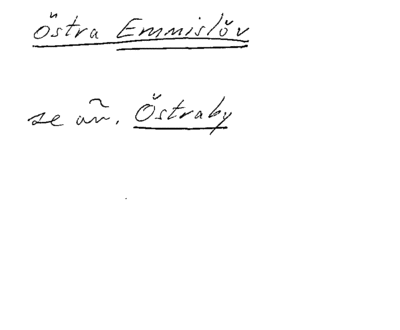 Östra Emmislöv
se än. Östraby